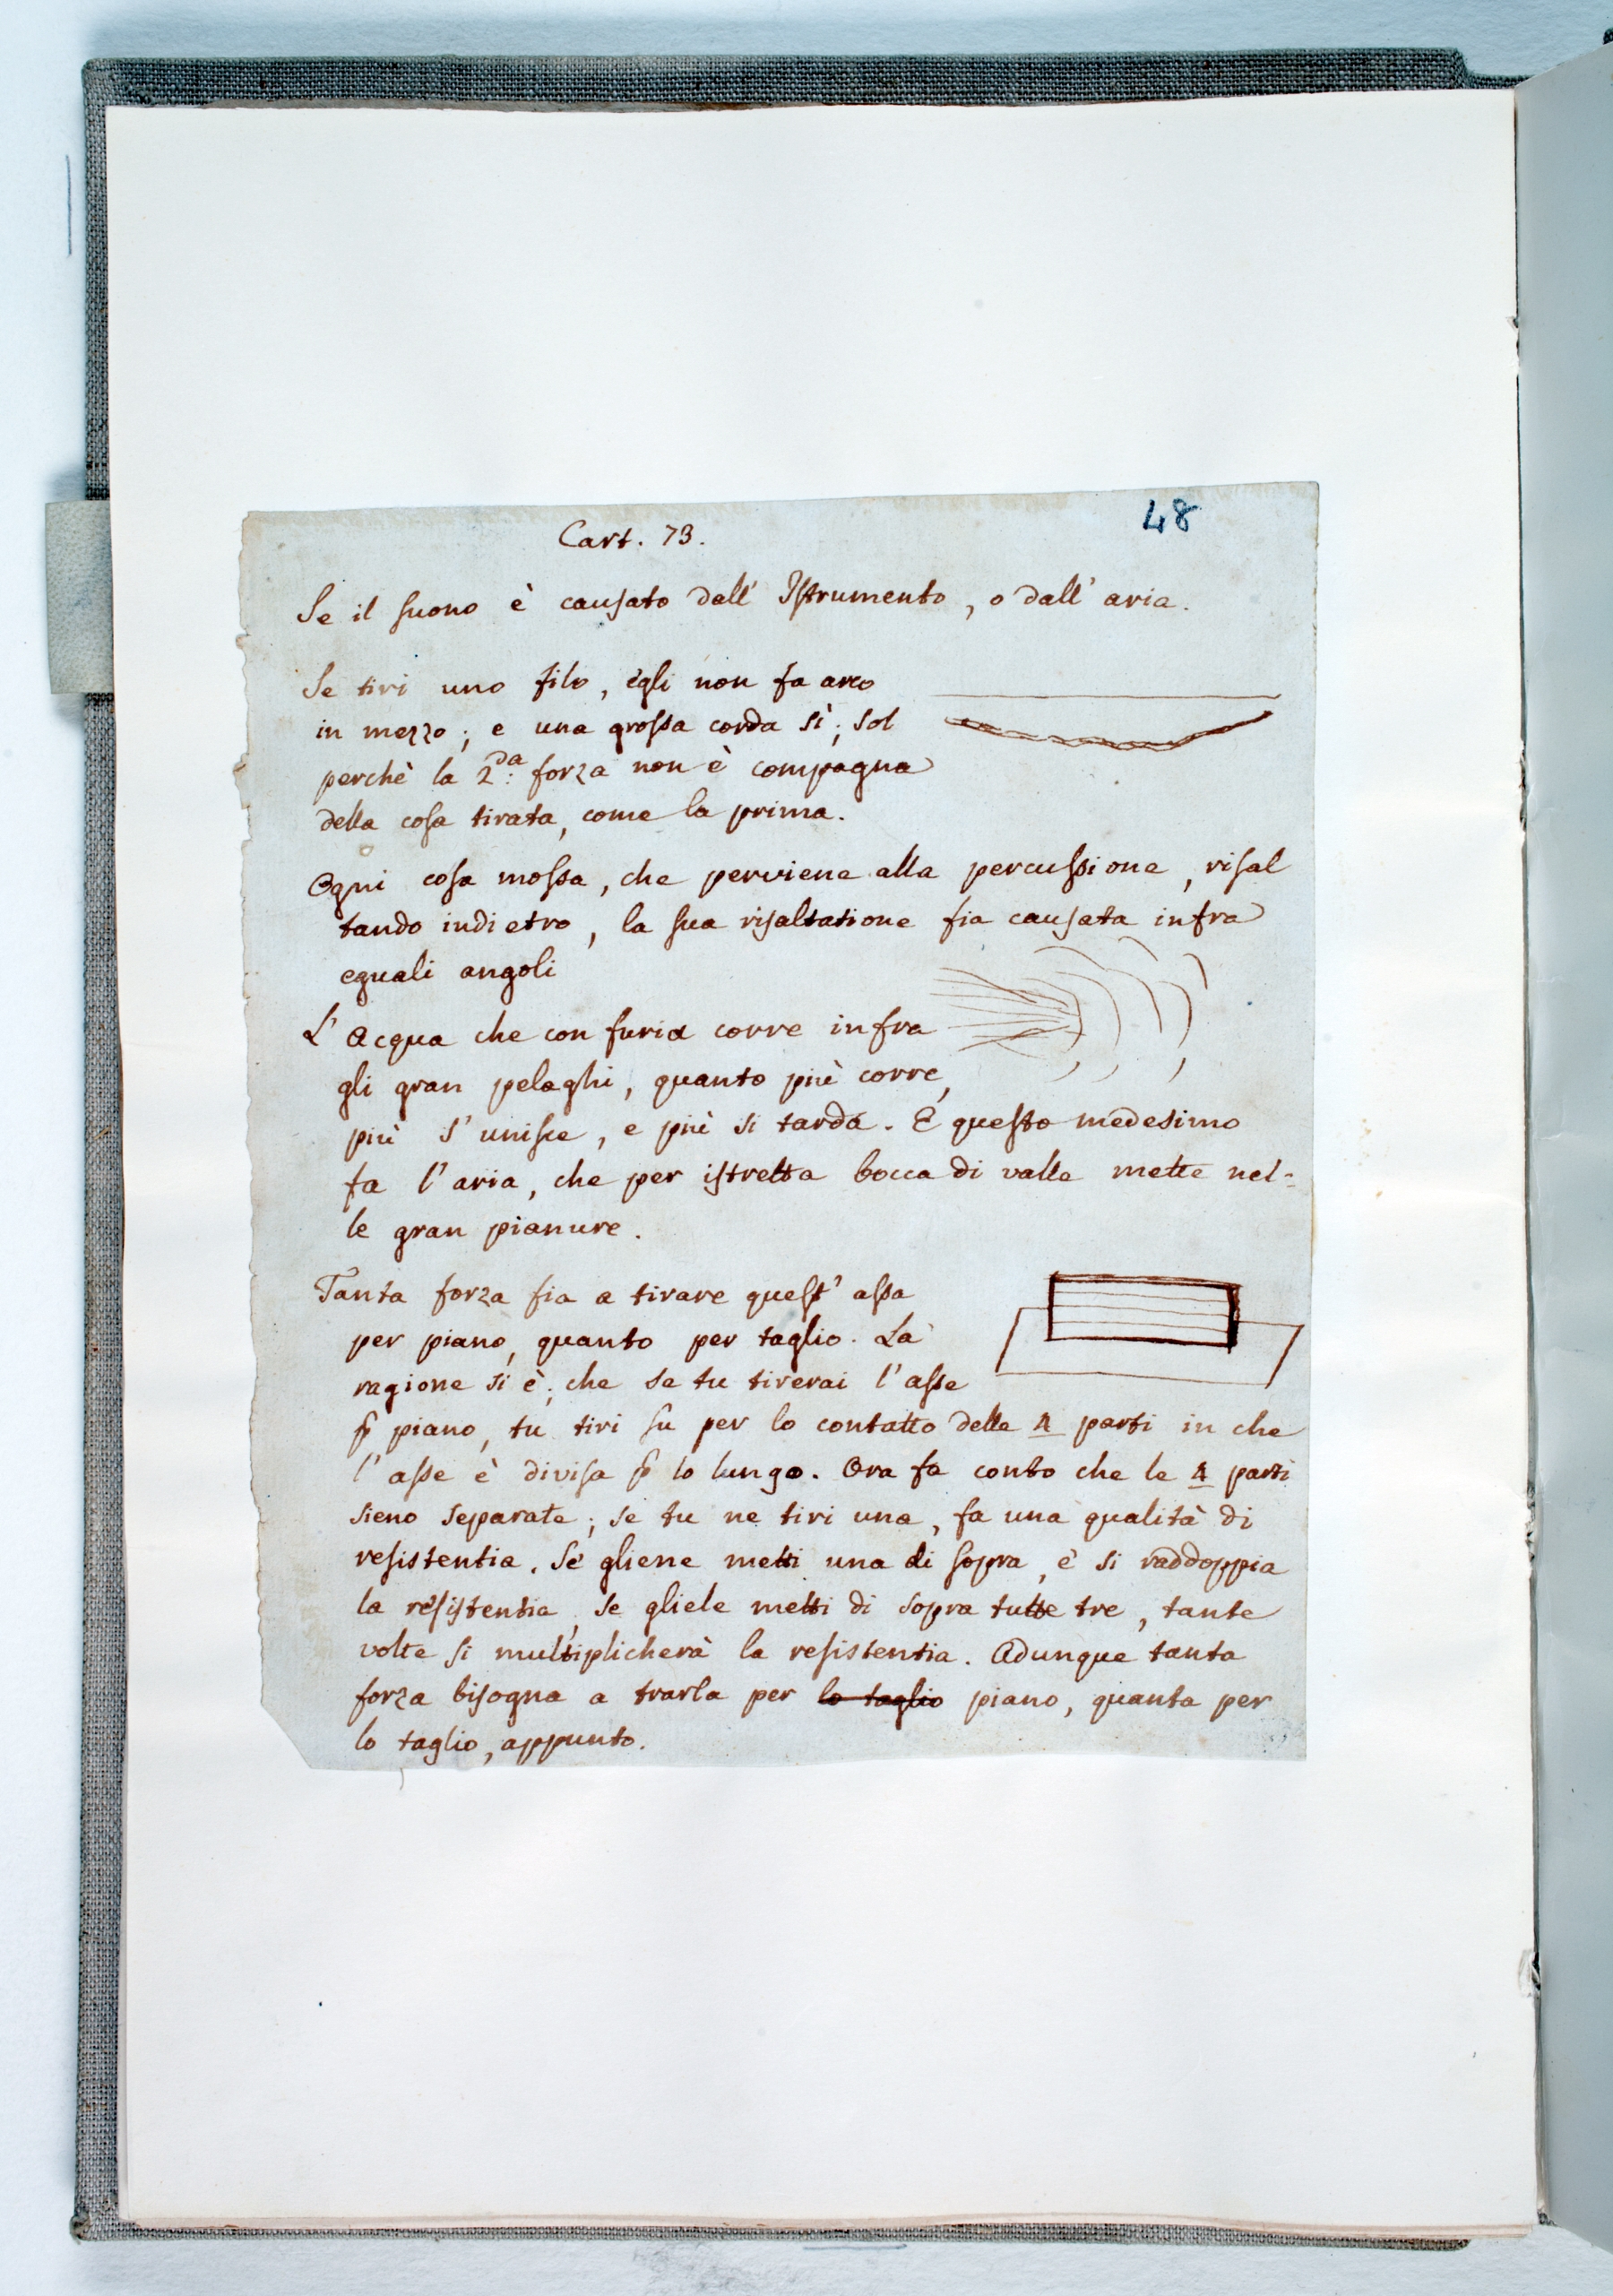 48
Cart. 73.
Se il suono è causato dall' Istrumento, o dall' aria.
Se tiri uno filo, egli non fa arco
in mezzo; e una grossa corda sì; sol
perchè la 2.da forza non è compagna
della cosa tirata, come la prima.
Ogni cosa mossa, che perviene alla percussione, risal
tando indietro, la sua risaltatione fia causata infra
eguali angoli
L' Acqua che con furia corre infra
gli gran pelaghi, quanto più corre,
più s' unisce, e più si tarda. E questo medesimo
fa l' aria, che per istretta bocca di valle mette nel-
le gran pianure.
Tanta forza fia a tirare quest' assa
per piano, quanto per taglio. La
ragione si è; che se tu tirerai l' asse
ꝑ piano, tu tiri su per lo contatto delle 4 parti in che
l' asse è divisa ꝑ lo lungo. Ora fa conto che le 4 parti
sieno separate; se tu ne tiri una, fa una qualità di
resistentia. Se gliene metti una di sopra, e' si raddoppia
la resistentia, se gliele metti di sopra tutte tre, tante
volte si multiplicherà la resistentia. Adunque tanta
forza bisogna a trarla per lo taglio piano, quanta per
lo taglio, appunto.